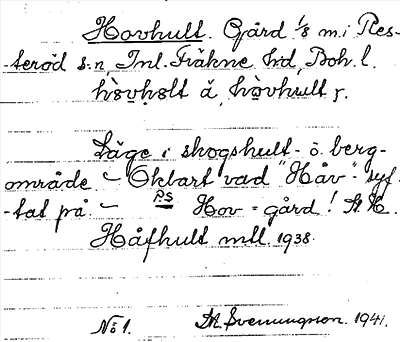 Hovhult. Gård 1/8 m. i Res-
-teröd s:n, Inl. Fräkne hd, Boh. l.
hòvhọlt ä, hòvhult y.
Läge i skogshult- o. berg-
område. – Oklart vad "Håv"- syf-
-tat på. – P.S Hov = gård! A. H.
Håfhult mtl. 1938.
No 1. M. Svenungson. 1941.